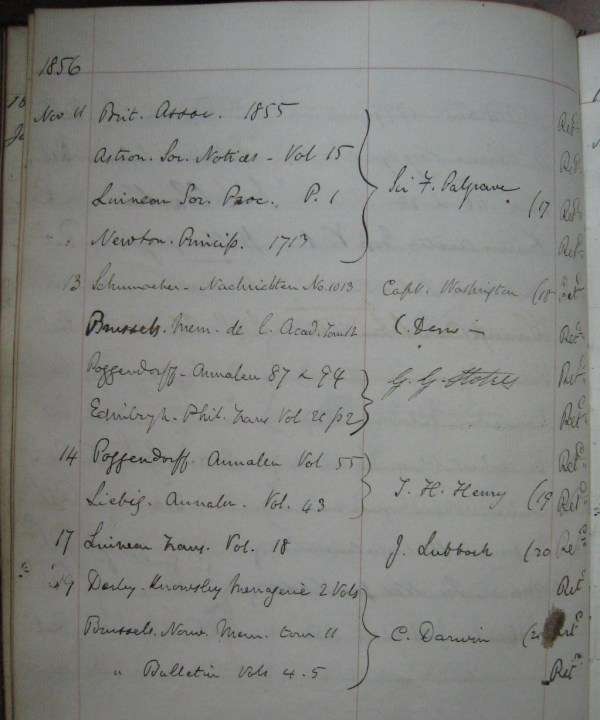 1856
Nov 11 Brit. Assoc. 1855 Ret
Astron. Soc. Notices - Vol 15 Ret
Linnean Soc. Proc. P. 1 Sir F. Palgrave (17 Ret
Newton. Princip. 1713 Ret
13 Schumacher - Nachrichten No. 1013 Capt. Washington (18 Ret
Brussels. Mem. de l'Acad. C. Darwin Ret
Poggendorff - Annalen 87 & 94 G. G. Stokes Ret
Edinburgh - Phil. Trans Vol 21 p 2 Ret
14 Poggendorff - Annalen Vol 55 Ret
Liebig. Annalen. Vol. 43 T. H. Henry (19 Ret
17 Linnean Trans. Vol. 18 J. Lubbock (20 Ret
19 Derby. Knowsley Menagerie 2 Vols Ret
Brussels. Nouv. Mem. tom 11 C. Darwin (21 Ret
" Bulletin Vols 4.5 Ret